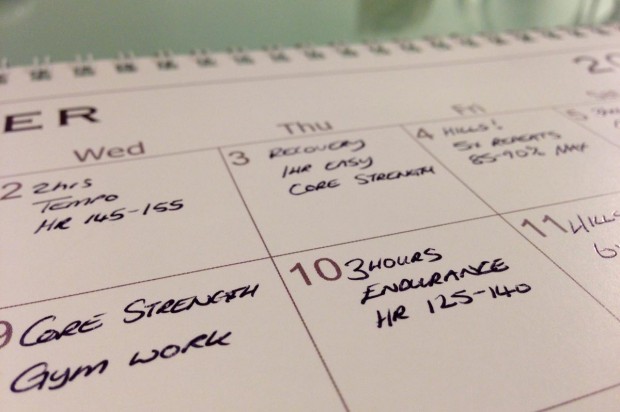 20
ER
Wed
Thu
Fri
2
2hrs
TEMPO
HR 145-155
3
RECOVERY
1HR EASY
CORE STRENGTH
4
HILLS!
5x REPEATS
85-90% MAX
5
9
CORE STRENGTH
Gym WORK
10
3 HOURS
ENDURANCE
HR 125-140
11
HILLS